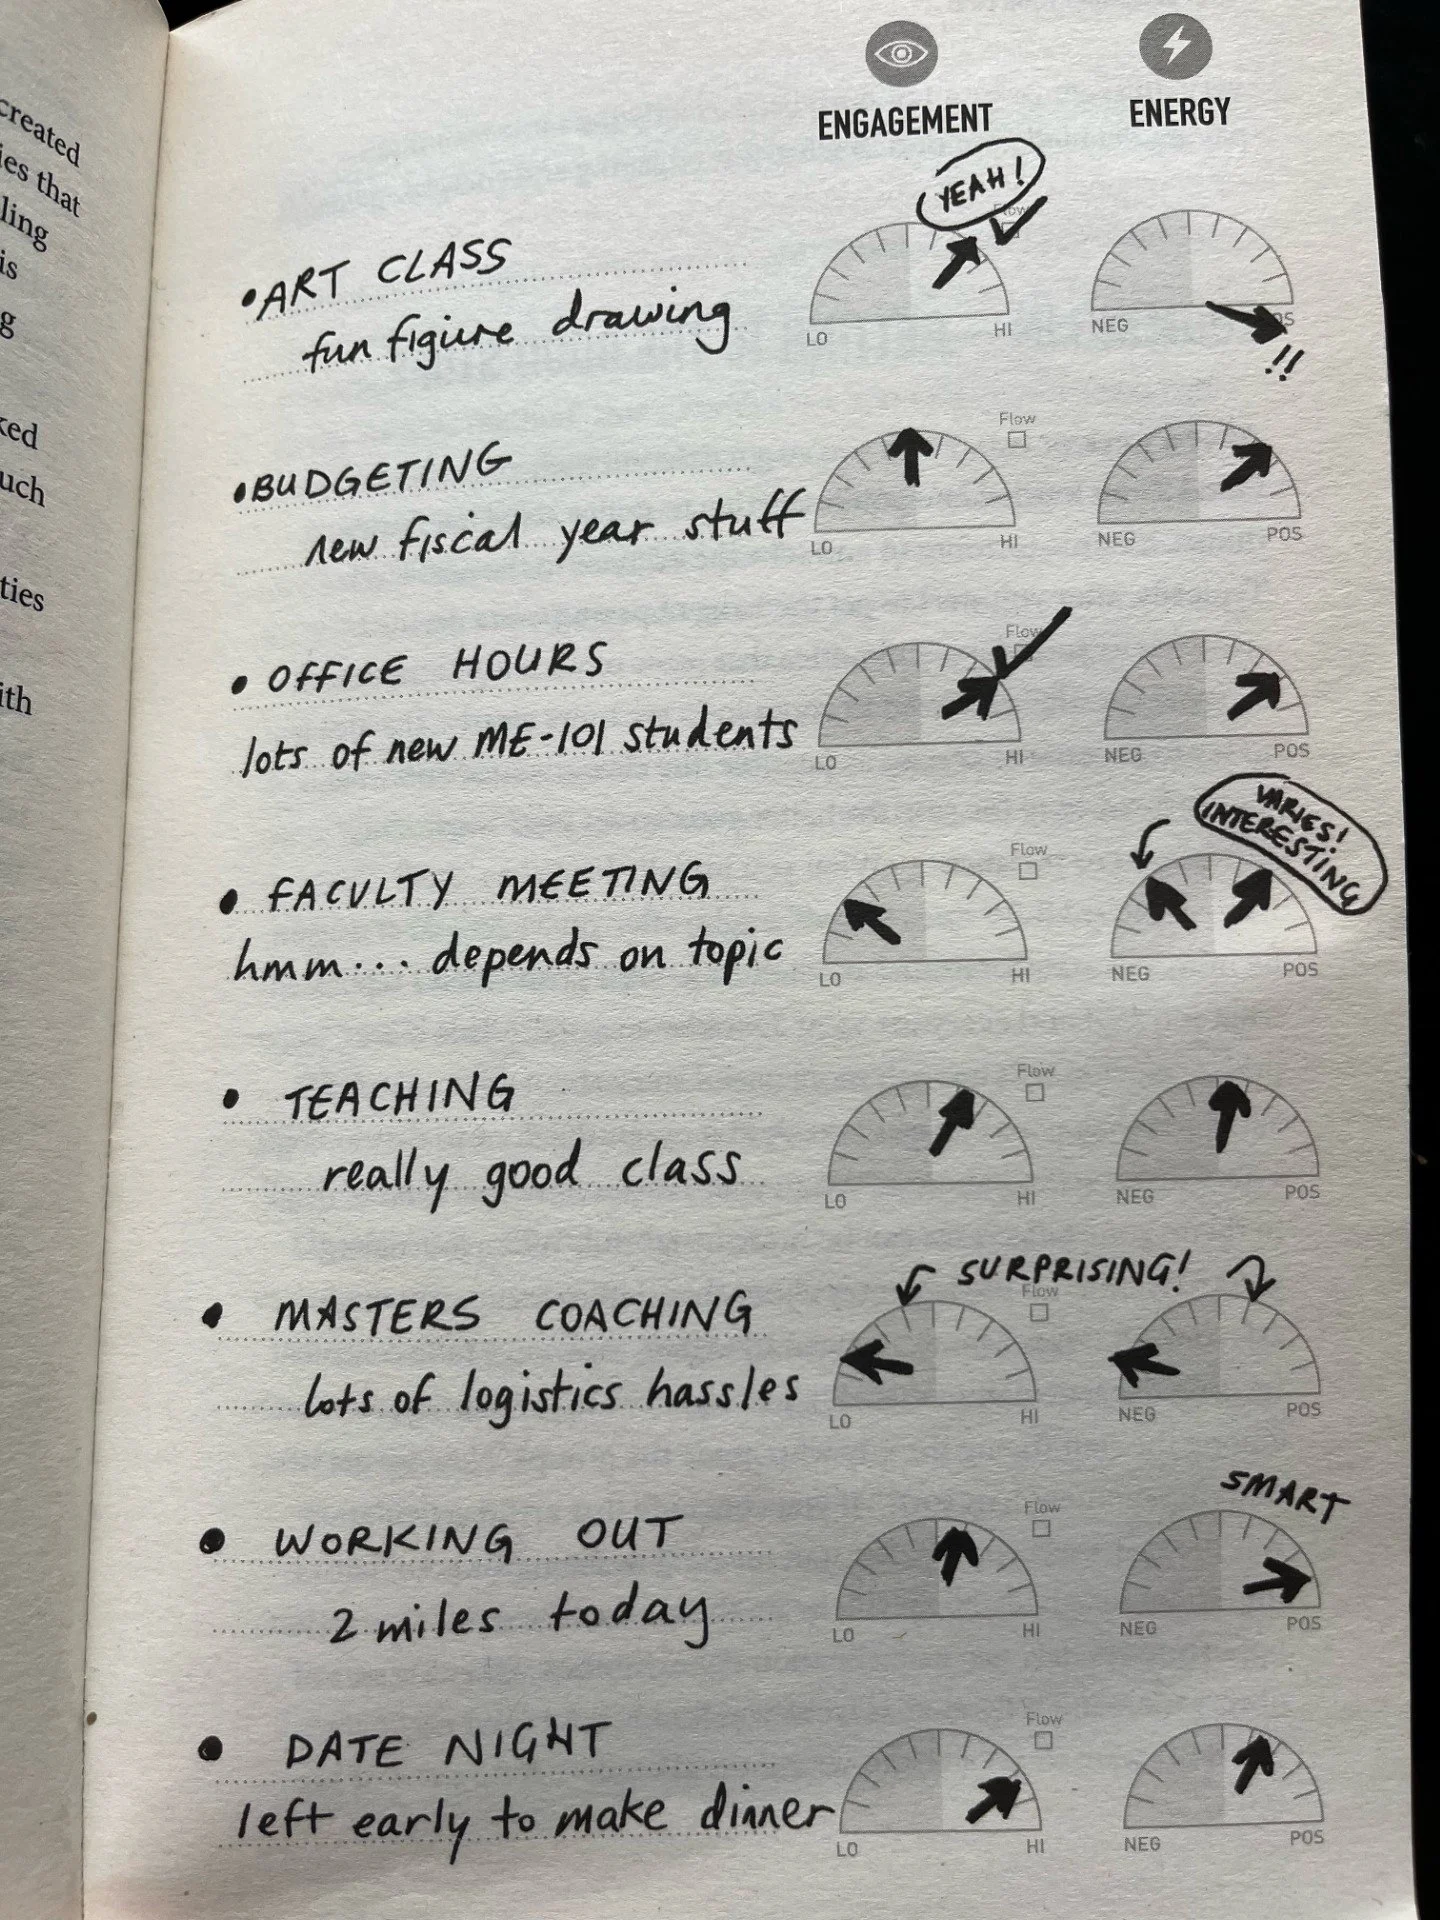 created
ies that
ling
is
g
ked
uch
ties
ith
ENGAGEMENT ENERGY
YEAH!
Flow
•ART CLASS
fun figure drawing
LO HI NEG POS
!!
Flow
•BUDGETING
new fiscal year stuff
LO HI NEG POS
Flow
• OFFICE HOURS
lots of new ME-101 students
LO HI NEG POS
VARIES!
INTERESTING
Flow
• FACULTY MEETING
hmm... depends on topic
LO HI NEG POS
Flow
• TEACHING
really good class
LO HI NEG POS
SURPRISING!
Flow
• MASTERS COACHING
lots of logistics hassles
LO HI NEG POS
SMART
Flow
• WORKING OUT
2 miles today
LO HI NEG POS
Flow
• DATE NIGHT
left early to make dinner
LO HI NEG POS